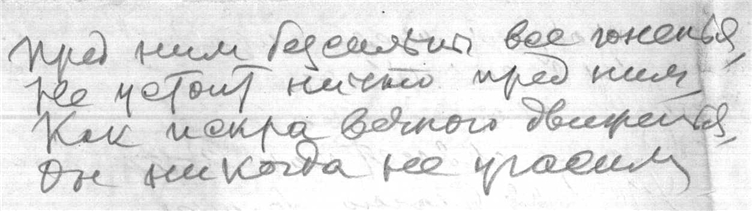 Пред ним бессильны все гоненья,
Не устоит ничто пред ним,
Как искра вечного движенья,
Он никогда не угасим